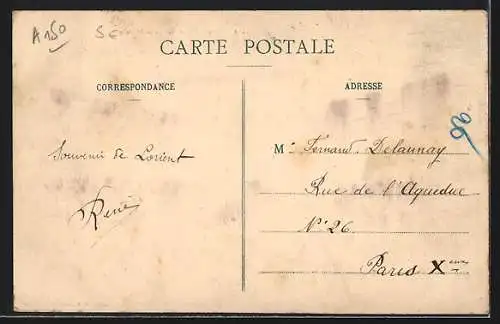 A150
CARTE POSTALE
CORRESPONDANCE
ADRESSE
Souvenir de Lorient
René
M. Fernand Delaunay
Rue de l'Aqueduc
N° 26
Paris Xème